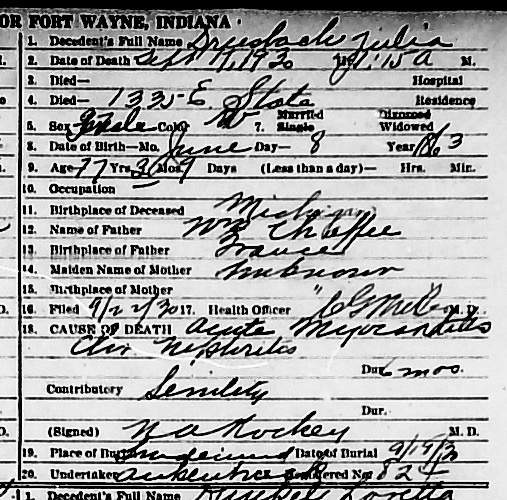 OR FORT WAYNE, INDIANA
1. Decedent's Full Name Driesbach Julia
2. Date of Death Sept 17, 1930 1:15 A M.
3. Died— Hospital
4. Died— 1335 E State Residence
5. Sex Female Color W 7. Married Single Divorced Widowed
8. Date of Birth—Mo. June Day— 8 Year
9. Age 77 Yrs. 3 Mos. 9 Days (Less than a day)— Hrs. Min.
10. Occupation
11. Birthplace of Deceased Michigan
12. Name of Father Wm Chaffee
13. Birthplace of Father France
14. Maiden Name of Mother Unknown
15. Birthplace of Mother
16. Filed 9/22/30 17. Health Officer M. D.
18. CAUSE OF DEATH Acute Myocarditis
Chr Nephritis
Dur. 6 mos.
Contributory Senility
Dur.
(Signed) N A Rockey M. D.
19. Place of Burial Date of Burial 9/19/30
20. Undertaker Registered No. 824
1. Decedent's Full Name